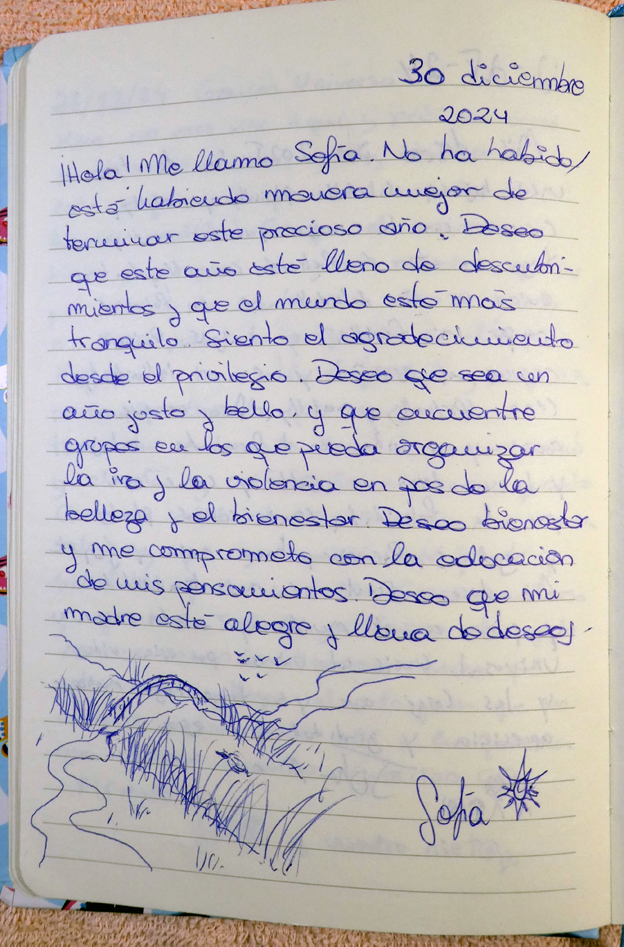 30 diciembre
2024
¡Hola! Me llamo Sofía. No ha habido/
está habiendo manera mejor de
terminar este precioso año. Deseo
que este año esté lleno de descubri-
mientos y que el mundo esté más
tranquilo. Siento el agradecimiento
desde el privilegio. Deseo que sea un
año justo y bello, y que encuentre
grupos en los que pueda organizar
la ira y la violencia en pos de la
belleza y el bienestar. Deseo bienestar
y me comprometo con la educación
de mis pensamientos. Deseo que mi
madre esté alegre y llena de deseos.
Sofía